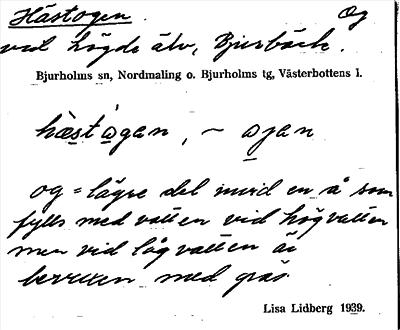 Hästogen. Og
vid Lögde älv, Bjurbäck.
Bjurholms sn, Nordmaling o. Bjurholms tg, Västerbottens l.
hæstogan, ~ ojan
og = lägre del invid en å som
fylls med vatten vid högvatten
men vid lågvatten är
bevuxen med gräs.
Lisa Lidberg 1939.